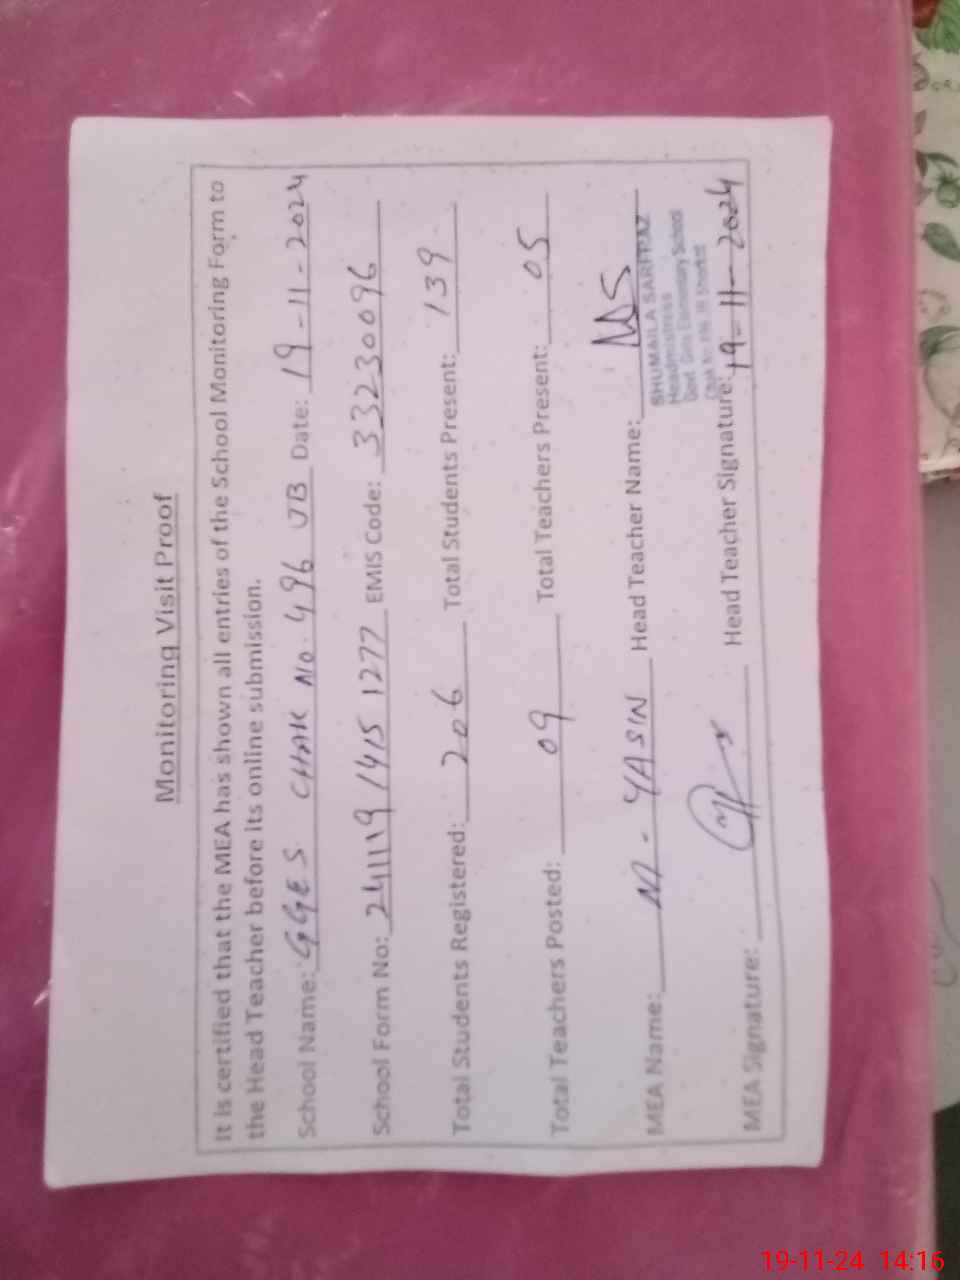 Monitoring Visit Proof
It is certified that the MEA has shown all entries of the School Monitoring Form to
the Head Teacher before its online submission.
School Name: GGES CHAK No. 496 JB Date: 19-11-2024
School Form No: 241119 1415 1277 EMIS Code: 33230096
Total Students Registered: 206 Total Students Present: 139
Total Teachers Posted: 09 Total Teachers Present: 05
MEA Name: M - YASIN Head Teacher Name:
SHUMAILA SARFRAZ
Headmistress
Govt. Girls Elementary School
MEA Signature: Head Teacher Signature: 19-11-2024
19-11-24 14:16